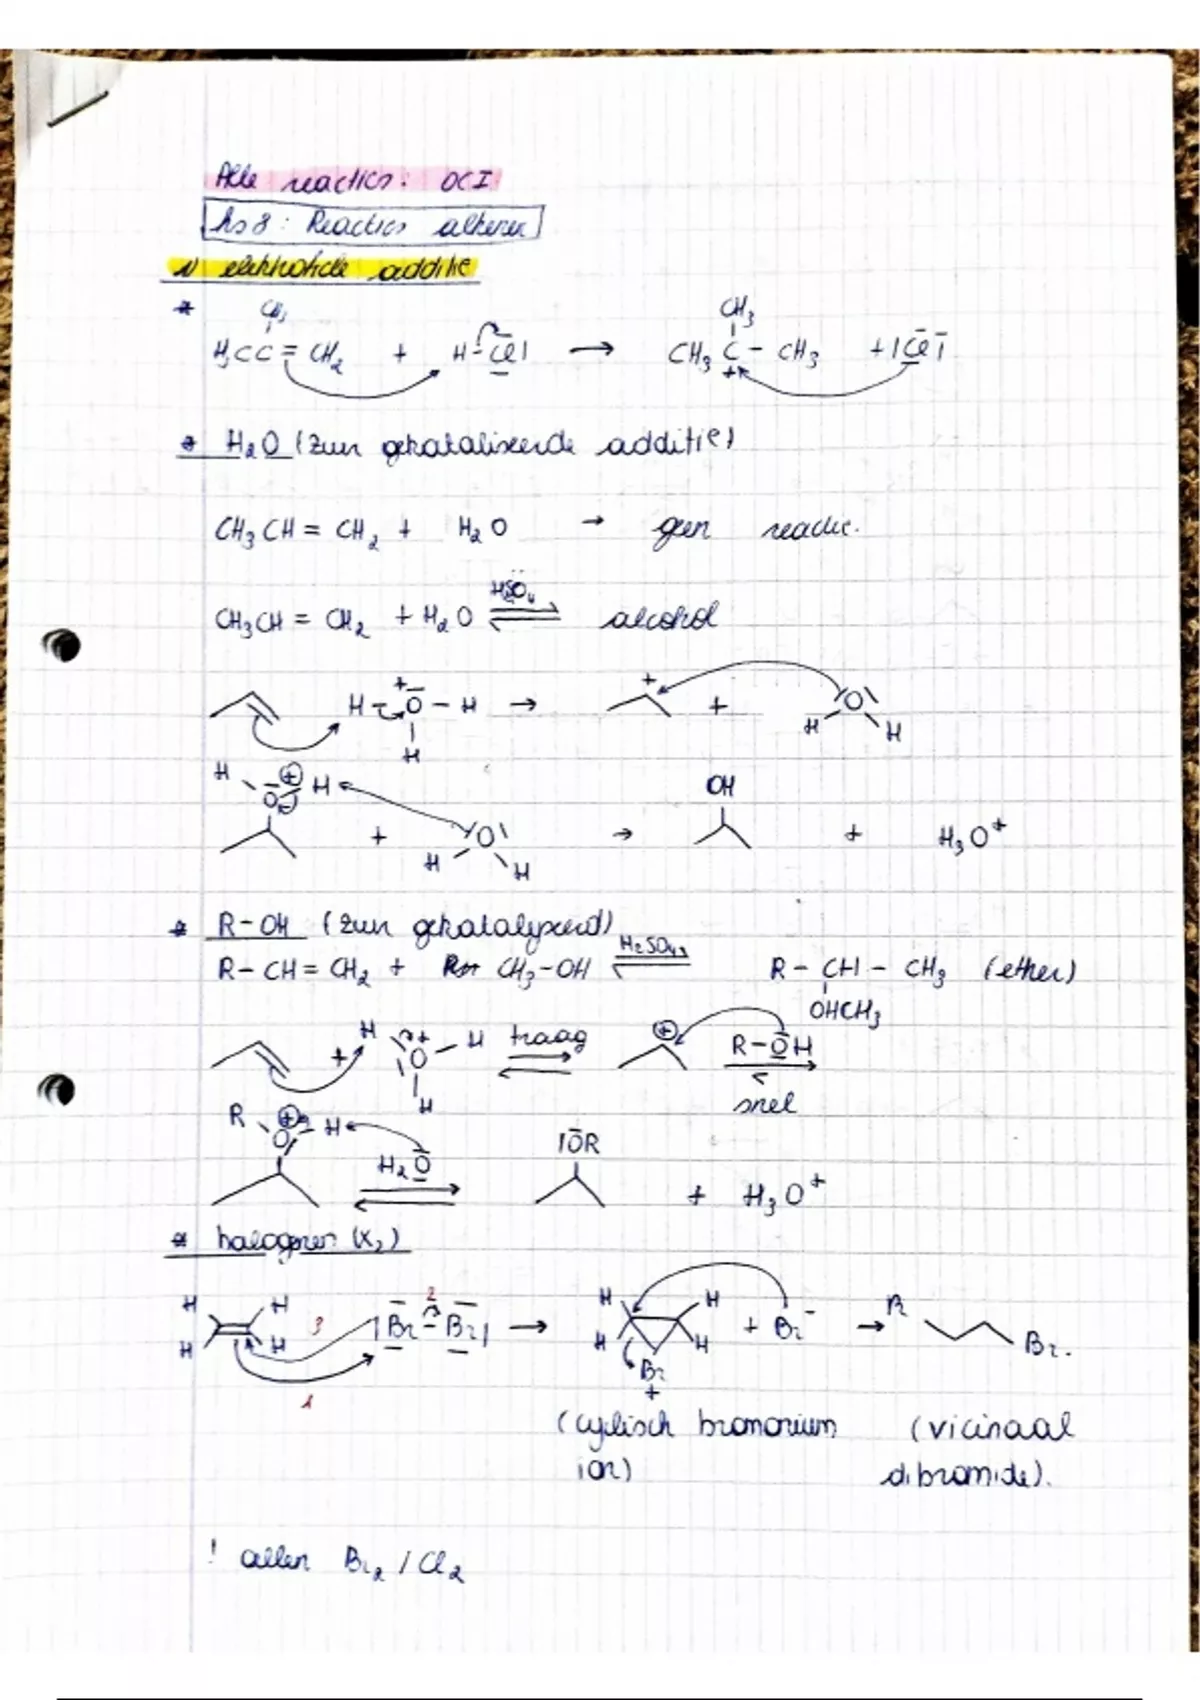 Alle reacties: OCI
hs 8: Reacties alkenen
1) elektrofiele additie
* CH3
H3CC = CH2 + H-Cl| → CH3 C - CH3 + |Cl|
CH3
+
* H2O (zuur gekataliseerde additie)
CH3CH = CH2 + H2O → geen reactie.
CH3CH = CH2 + H2O H2SO4 ⇌ alcohol
H - O - H → + + O
+
H H H
H O + H OH
+ O → + H3O+
H H
* R-OH (zuur gekatalyseerd)
R - CH = CH2 + CH3-OH H2SO4 ⇌ R - CH - CH3 (ether)
OHCH3
+ H O + H traag ⇌ + R-OH
H snel
R O + H H2O ⇌ |OR + H3O+
* halogenen (X2)
H H 3 |Br - Br| 2 → H H + Br- → Br Br.
H H H H
1 Br
+
(cyclisch bromonium (vicinaal
ion) dibromide).
! alleen Br2 / Cl2